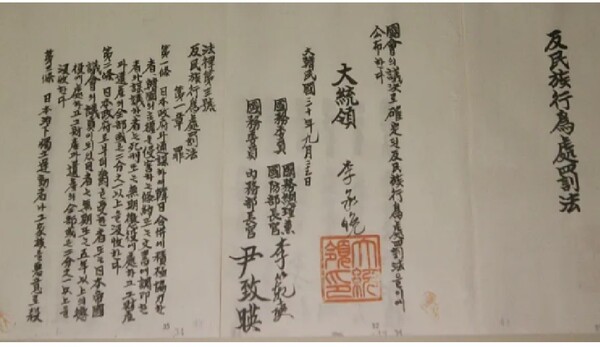 反民族行為處罰法
國會의議決로確定된反民族行為處罰法을이에
公布한다
大統領 李承晩
大統領印
大韓民國三十年九月二十二日
國務委員 國務總理兼
國防部長官 李範奭
國務委員 內務部長官 尹致暎
法律第三號
反民族行為處罰法
第一章 罪
第一條 日本政府와通謀하여韓日合併에積極協力한
者, 韓國의主權을侵害하는條約또는文書에調印한
者와謀議한者는死刑또는無期懲役에處하고그財産
과遺産의全部或은二分之一以上을沒收한다
第二條 日本政府로부터爵을受한者또는日本帝國
議會의議員이되었던者는無期또는五年以上의懲
役에處하고그財産과遺産의全部或은二分之一以上을
沒收한다
第三條 日本治下獨立運動者나그家族을惡意로殺